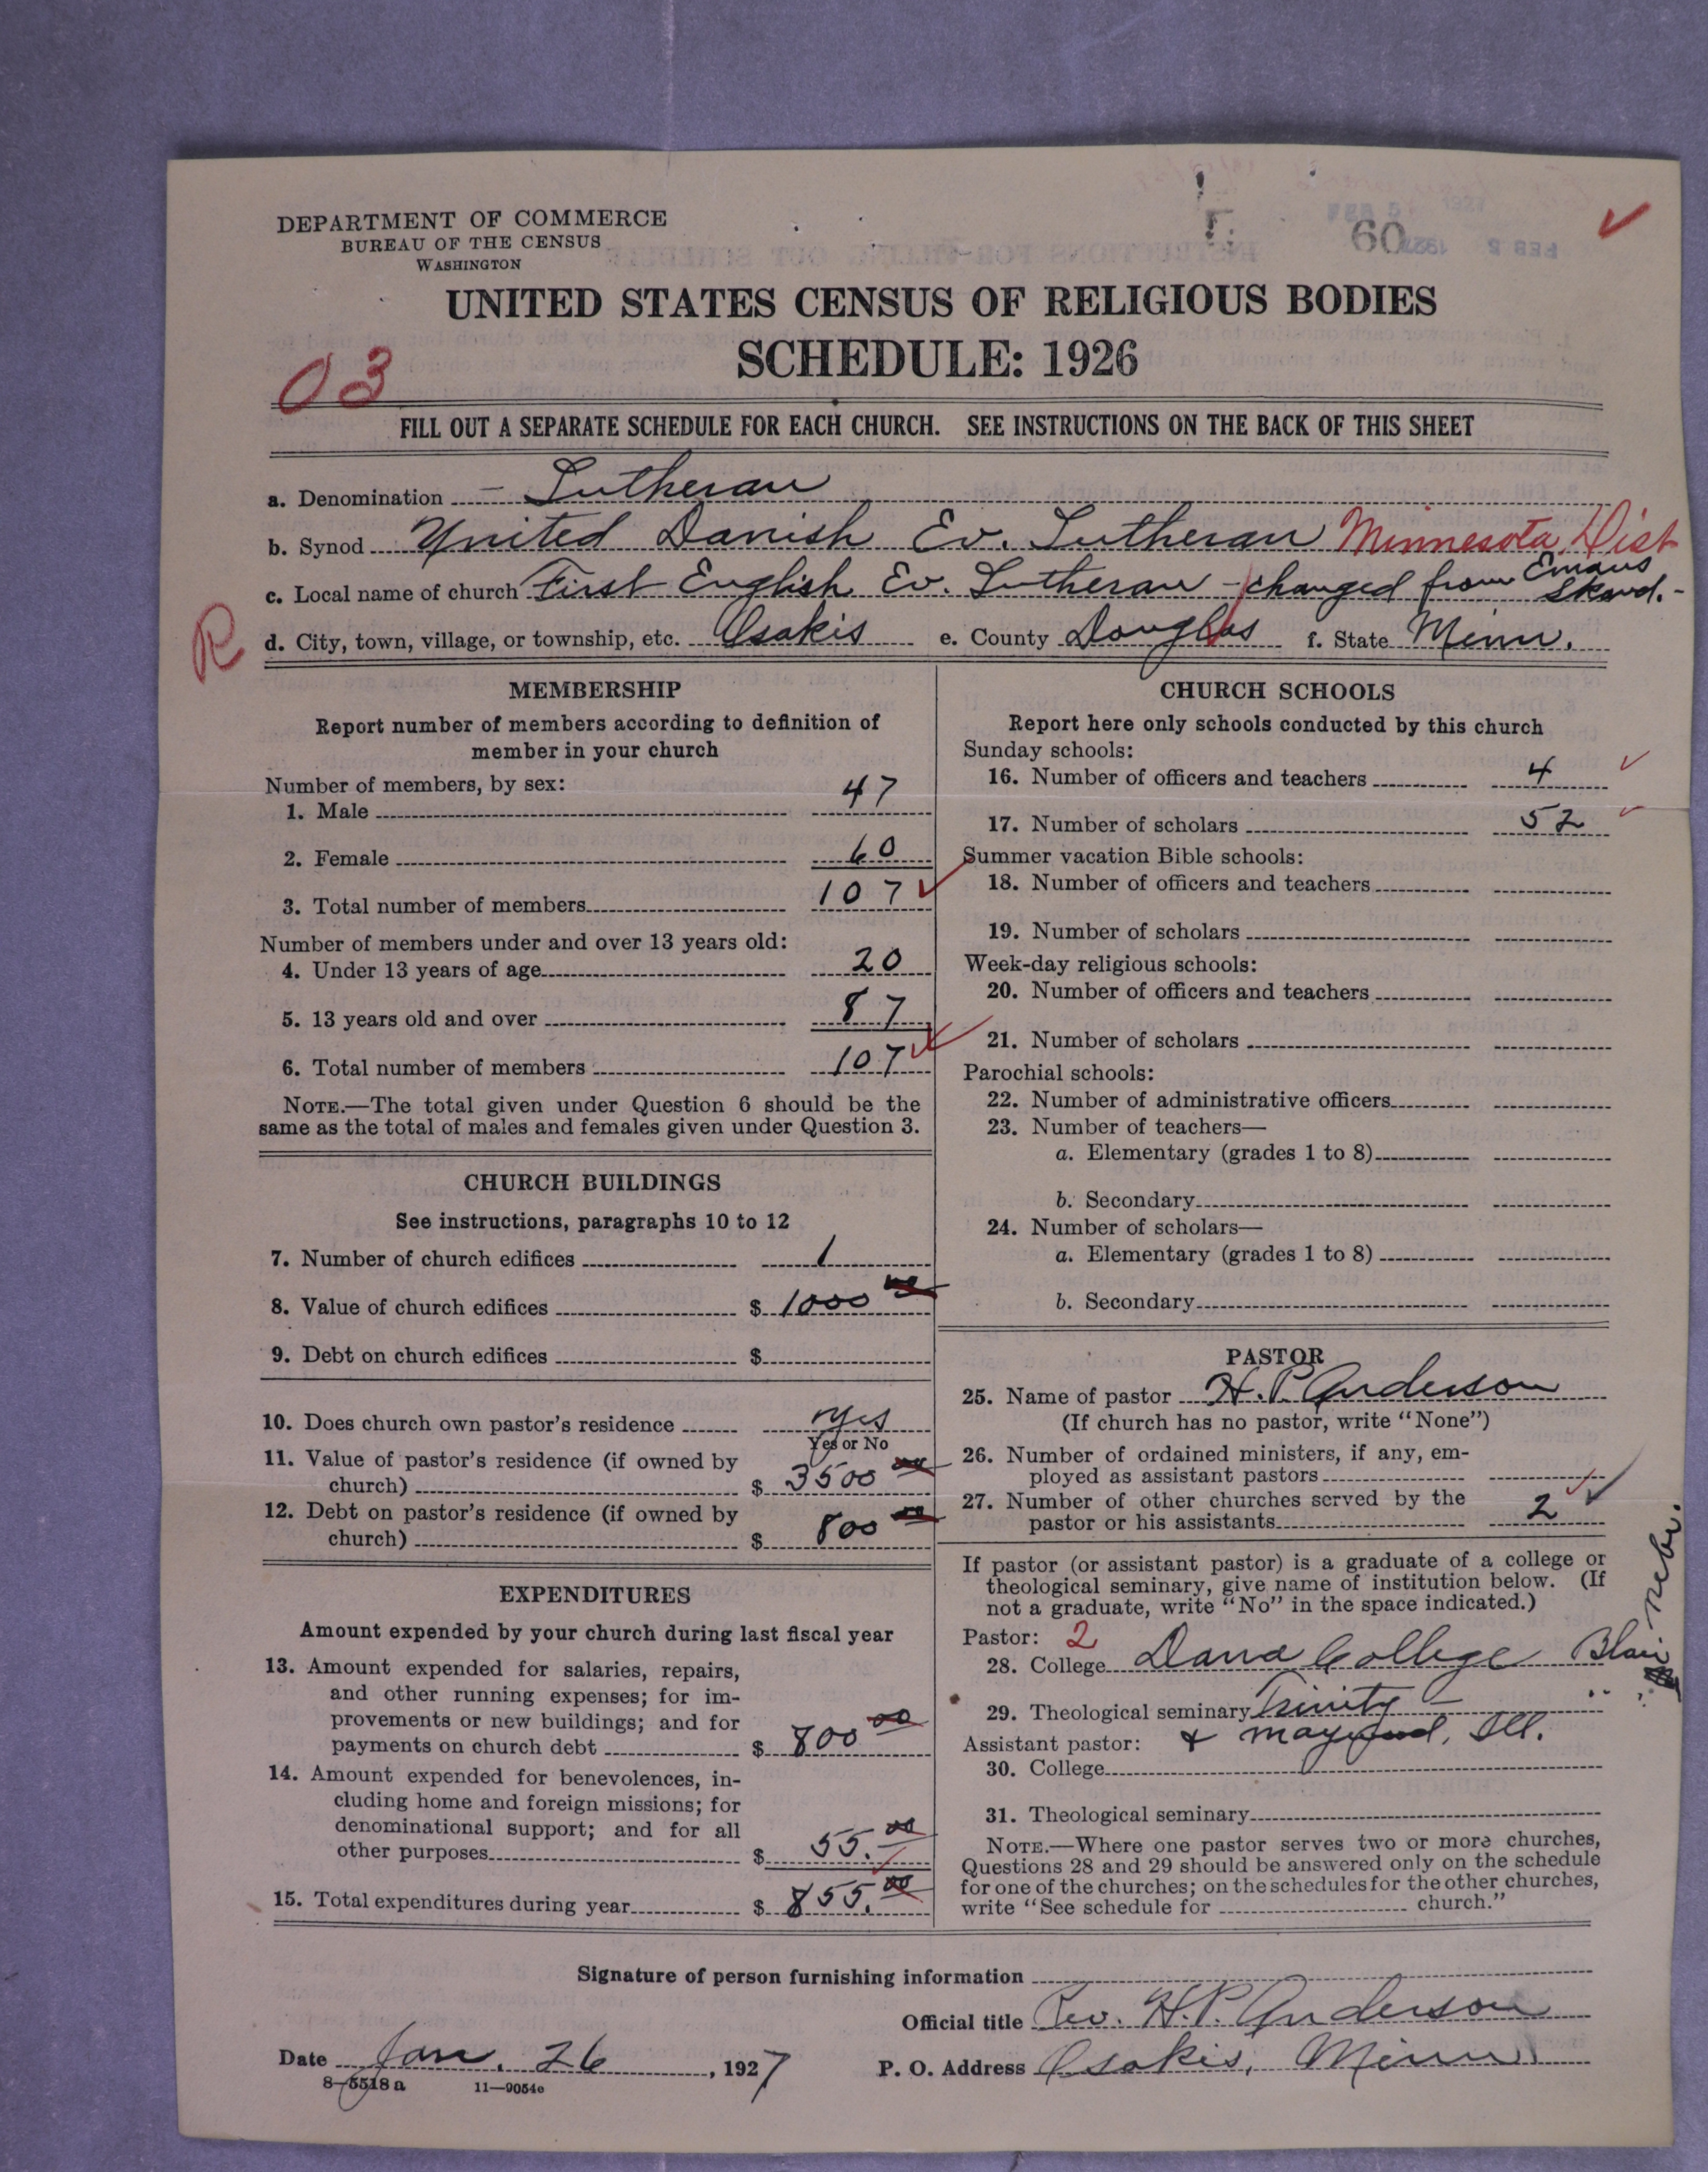 DEPARTMENT OF COMMERCE
BUREAU OF THE CENSUS
WASHINGTON
60
UNITED STATES CENSUS OF RELIGIOUS BODIES
SCHEDULE: 1926
03
FILL OUT A SEPARATE SCHEDULE FOR EACH CHURCH. SEE INSTRUCTIONS ON THE BACK OF THIS SHEET
a. Denomination - Lutheran
b. Synod United Danish Ev. Lutheran Minnesota Dist
c. Local name of church First English Ev. Lutheran - changed from Emaus Skand.-
R
d. City, town, village, or township, etc. Osakis e. County Douglas f. State Minn.
MEMBERSHIP
Report number of members according to definition of
member in your church
Number of members, by sex:
1. Male 47
2. Female 60
3. Total number of members 107
Number of members under and over 13 years old:
4. Under 13 years of age 20
5. 13 years old and over 87
6. Total number of members 107
NOTE.—The total given under Question 6 should be the
same as the total of males and females given under Question 3.
CHURCH BUILDINGS
See instructions, paragraphs 10 to 12
7. Number of church edifices 1
8. Value of church edifices $ 1000
9. Debt on church edifices $
10. Does church own pastor's residence yes
Yes or No
11. Value of pastor's residence (if owned by
church) $ 3500
12. Debt on pastor's residence (if owned by
church) $ 800
EXPENDITURES
Amount expended by your church during last fiscal year
13. Amount expended for salaries, repairs,
and other running expenses; for im-
provements or new buildings; and for
payments on church debt $ 800 00
14. Amount expended for benevolences, in-
cluding home and foreign missions; for
denominational support; and for all
other purposes $ 55. 00
15. Total expenditures during year $ 855. 00
CHURCH SCHOOLS
Report here only schools conducted by this church
Sunday schools:
16. Number of officers and teachers 4
17. Number of scholars 52
Summer vacation Bible schools:
18. Number of officers and teachers
19. Number of scholars
Week-day religious schools:
20. Number of officers and teachers
21. Number of scholars
Parochial schools:
22. Number of administrative officers
23. Number of teachers—
a. Elementary (grades 1 to 8)
b. Secondary
24. Number of scholars—
a. Elementary (grades 1 to 8)
b. Secondary
PASTOR
25. Name of pastor H. P. Anderson
(If church has no pastor, write "None")
26. Number of ordained ministers, if any, em-
ployed as assistant pastors
27. Number of other churches served by the
pastor or his assistants 2
If pastor (or assistant pastor) is a graduate of a college or
theological seminary, give name of institution below. (If
not a graduate, write "No" in the space indicated.)
Pastor: 2
28. College Dana College Blair Nebr.
29. Theological seminary Trinity - " "
Assistant pastor: & Maywood, Ill.
30. College
31. Theological seminary
NOTE.—Where one pastor serves two or more churches,
Questions 28 and 29 should be answered only on the schedule
for one of the churches; on the schedules for the other churches,
write "See schedule for church."
Signature of person furnishing information
Official title Rev. H.P. Anderson
Date Jan. 26, 1927 P. O. Address Osakis, Minn.
8-5518a 11—9054c